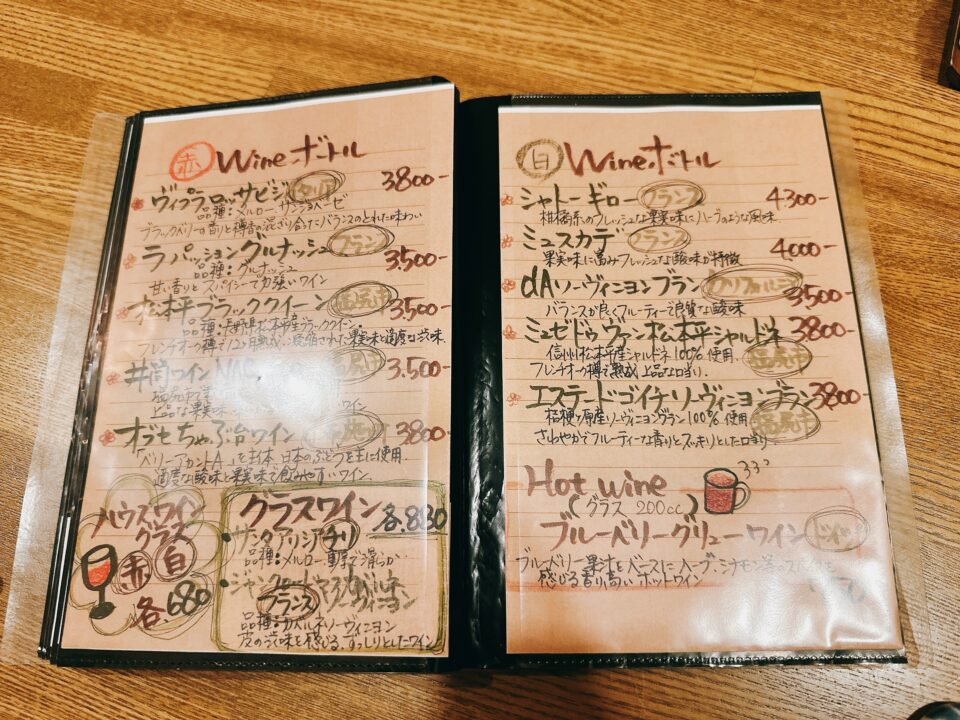 赤 Wine.ボトル
ヴィプラ ロッサビジ イタリア 3800-
品種:メルロー サンジョベーゼ
ブラックベリーの香りと樽香の混ざり合ったバランスのとれた味わい
ラ パッション グルナッシュ フランス 3.500-
品種:グルナッシュ
甘い香りと スパイシーで力強いワイン
松本平ブラッククイーン 塩尻市 3,500-
品種:長野県松本平産ブラッククイーン
フレンチオーク樽で12ヶ月熟成、凝縮された果実味と適度な渋味
井筒ワイン 塩尻市 3.500-
上品な果実味
オブセちゃぶ台ワイン 3800-
「ベリーアリカントA」を主体、日本のぶどうを主に使用.
適度な酸味と果実味で飲みやすいワイン.
ハウスワイン
グラス
赤 白
各.680
グラスワイン
各.830
・サンタ アリシア チリ
品種:メルロー 動
で滑らか
フランス ソーヴィニヨン
品種:カベルネソーヴィニヨン
皮の渋味を感じる、ずっしりとしたワイン
白 Wine.ボトル
シャトーギロー フランス 4300-
柑橘系のフレッシュな果実味にハーブのような風味.
ミュスカデ フランス 4000-
果実味に富みフレッシュな酸味が特徴
dAソーヴィニヨンブラン 3,500-
バランスが良くフルーティーで良質な酸味
ミュゼドゥ ヴァン松本平シャルドネ 3800-
信州松本平産シャルドネ 100%使用. 塩尻市
フレンチオークの樽で熟成 上品な口当り.
エステートゴイチ・ソーヴィニヨンブラン 3800-
桔梗ヶ原産ソーヴィニヨンブラン 100%使用 塩尻市
さわやかでフルーティーな香りとスッキリとした口当り
Hot wine
(グラス 200cc)
ブルーベリーグリューワイン ドイツ
ブルーベリー果汁をベースにハーブ、シナモン等のスパイスを
感じる香り高いホットワイン